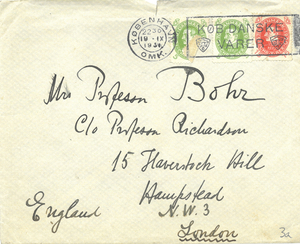 KØBENHAVN
2230
19 IX
1934
OMK.
KØB DANSKE
VARER
Mrs Professor Bohr
c/o Professor Richardson
15 Haverstock Hill
Hampstead
England N.W.3
London
3a